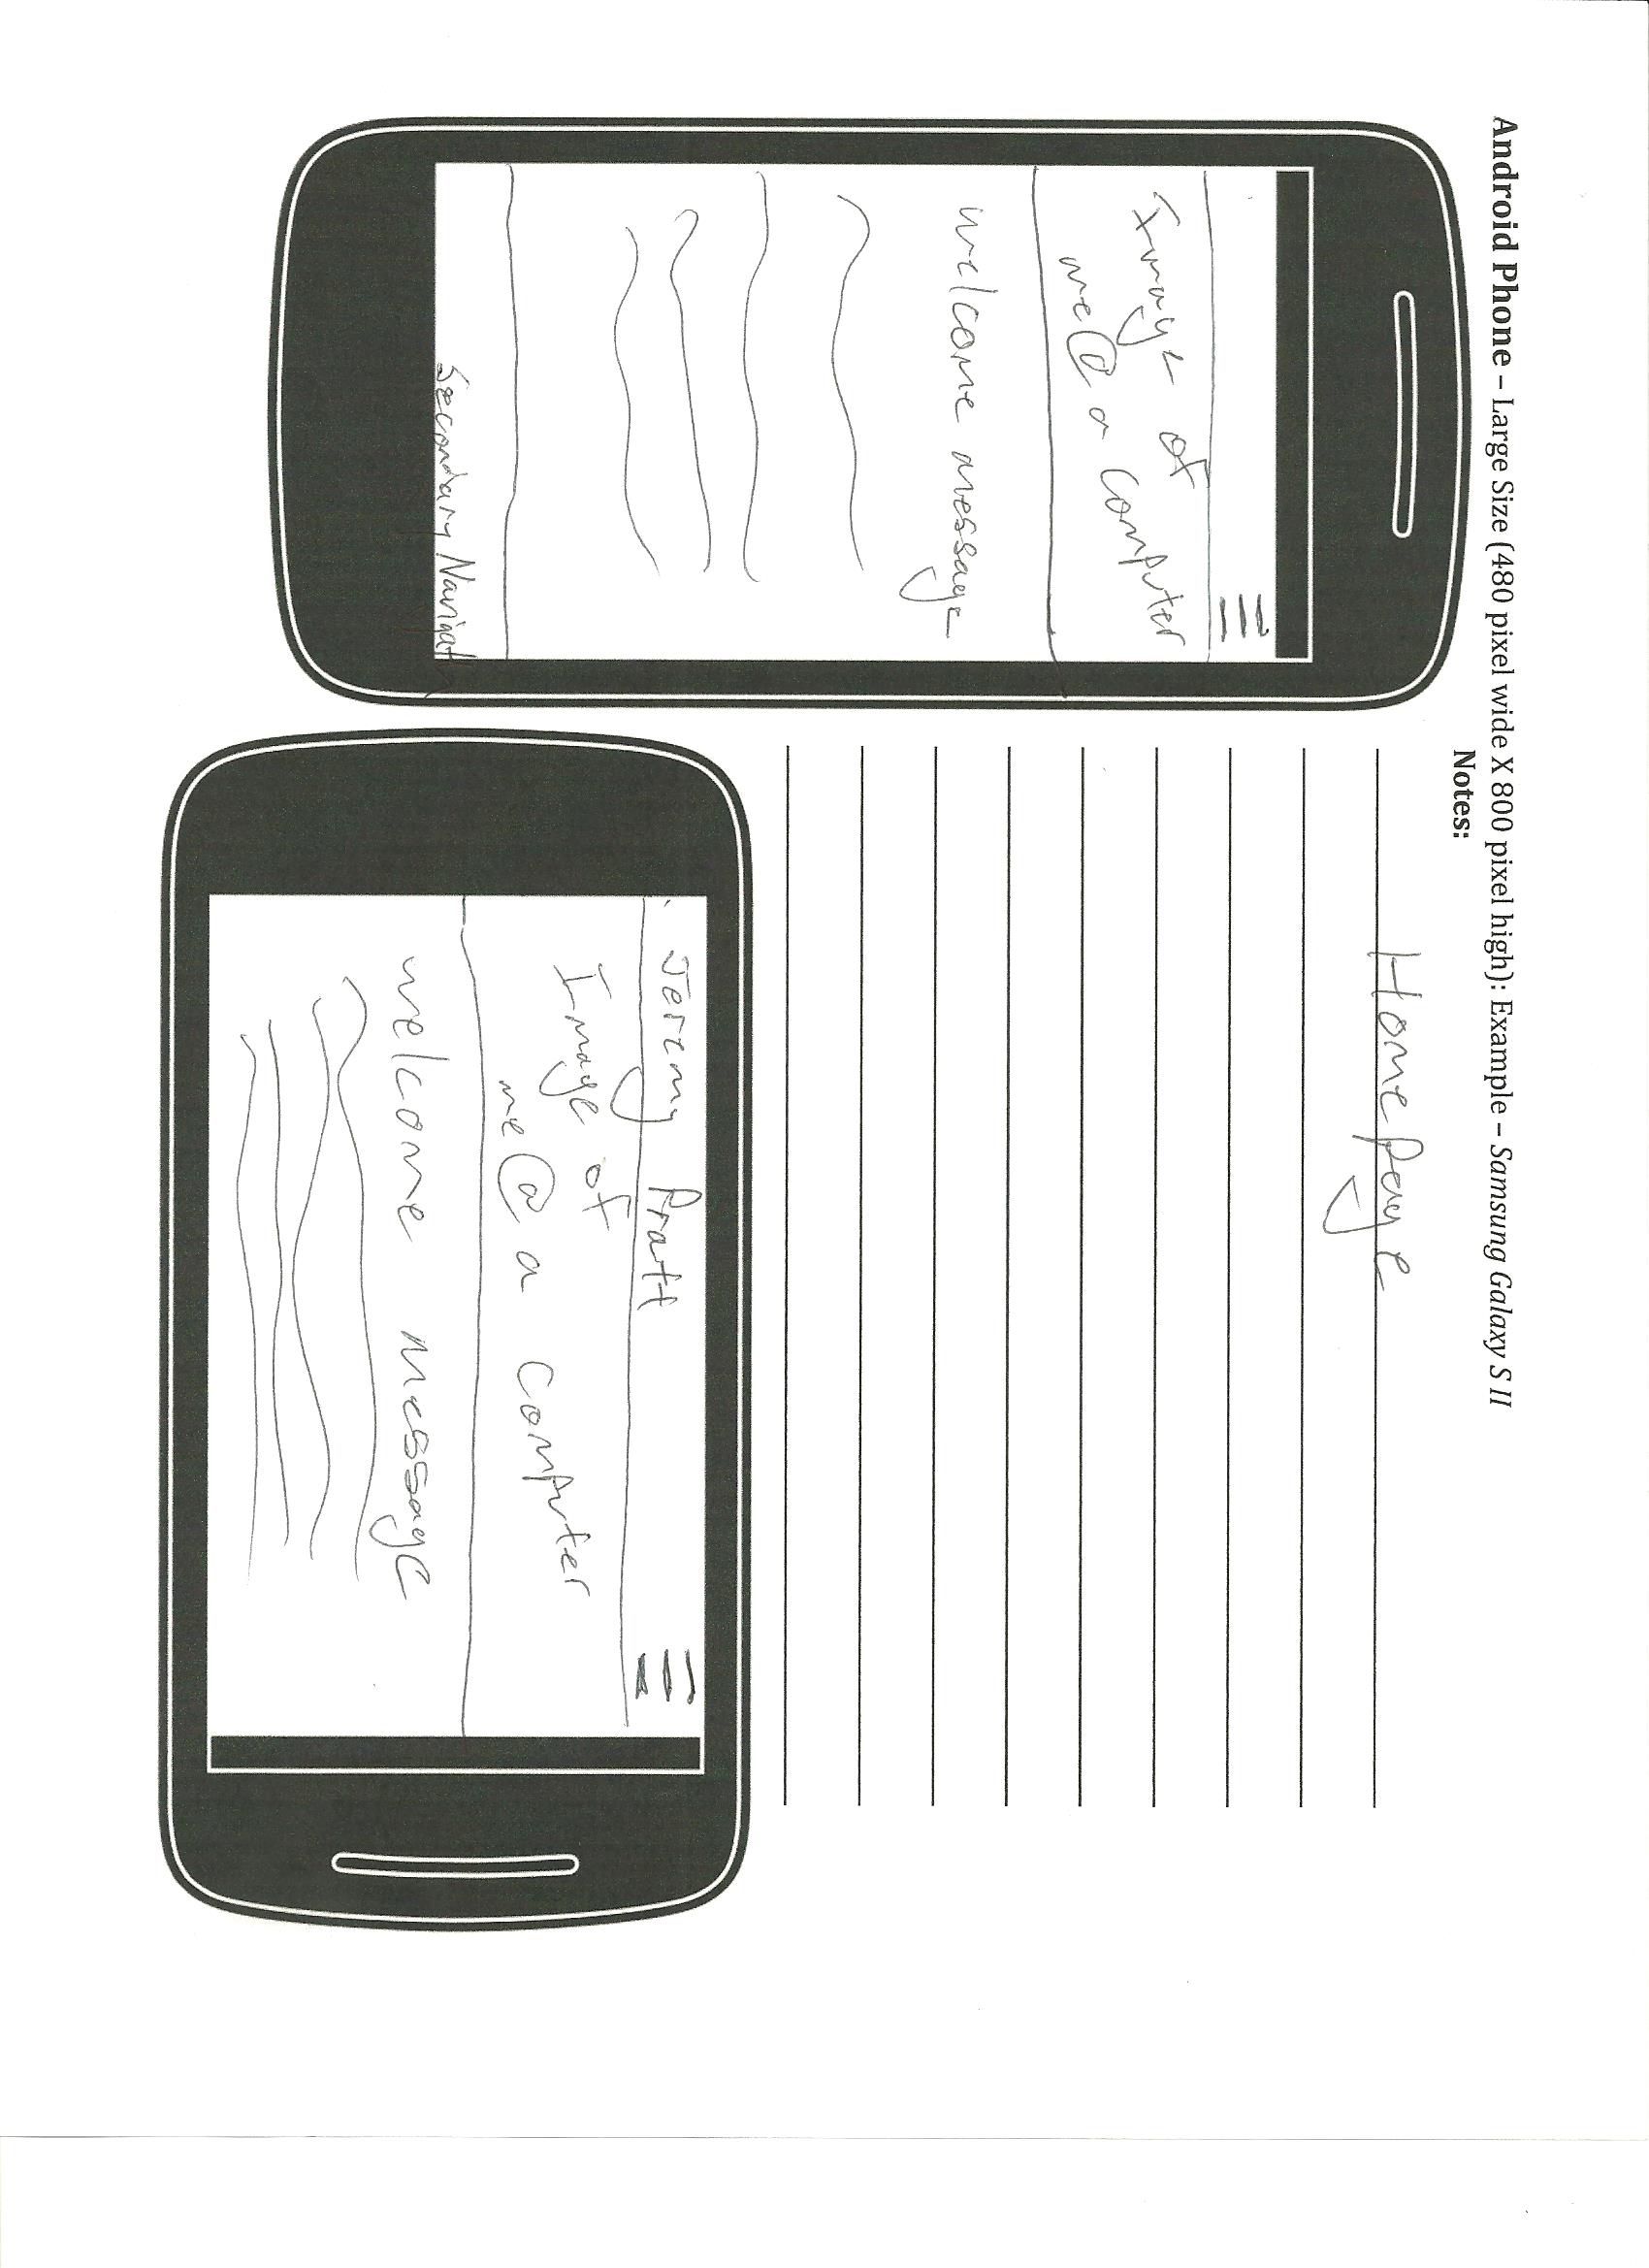 Android Phone – Large Size (480 pixel wide X 800 pixel high): Example – Samsung Galaxy S II
Notes:
Home page
Image of
me @ a computer
welcome message
Secondary Navigat
Jeremy Pratt
Image of
me @ a computer
welcome message